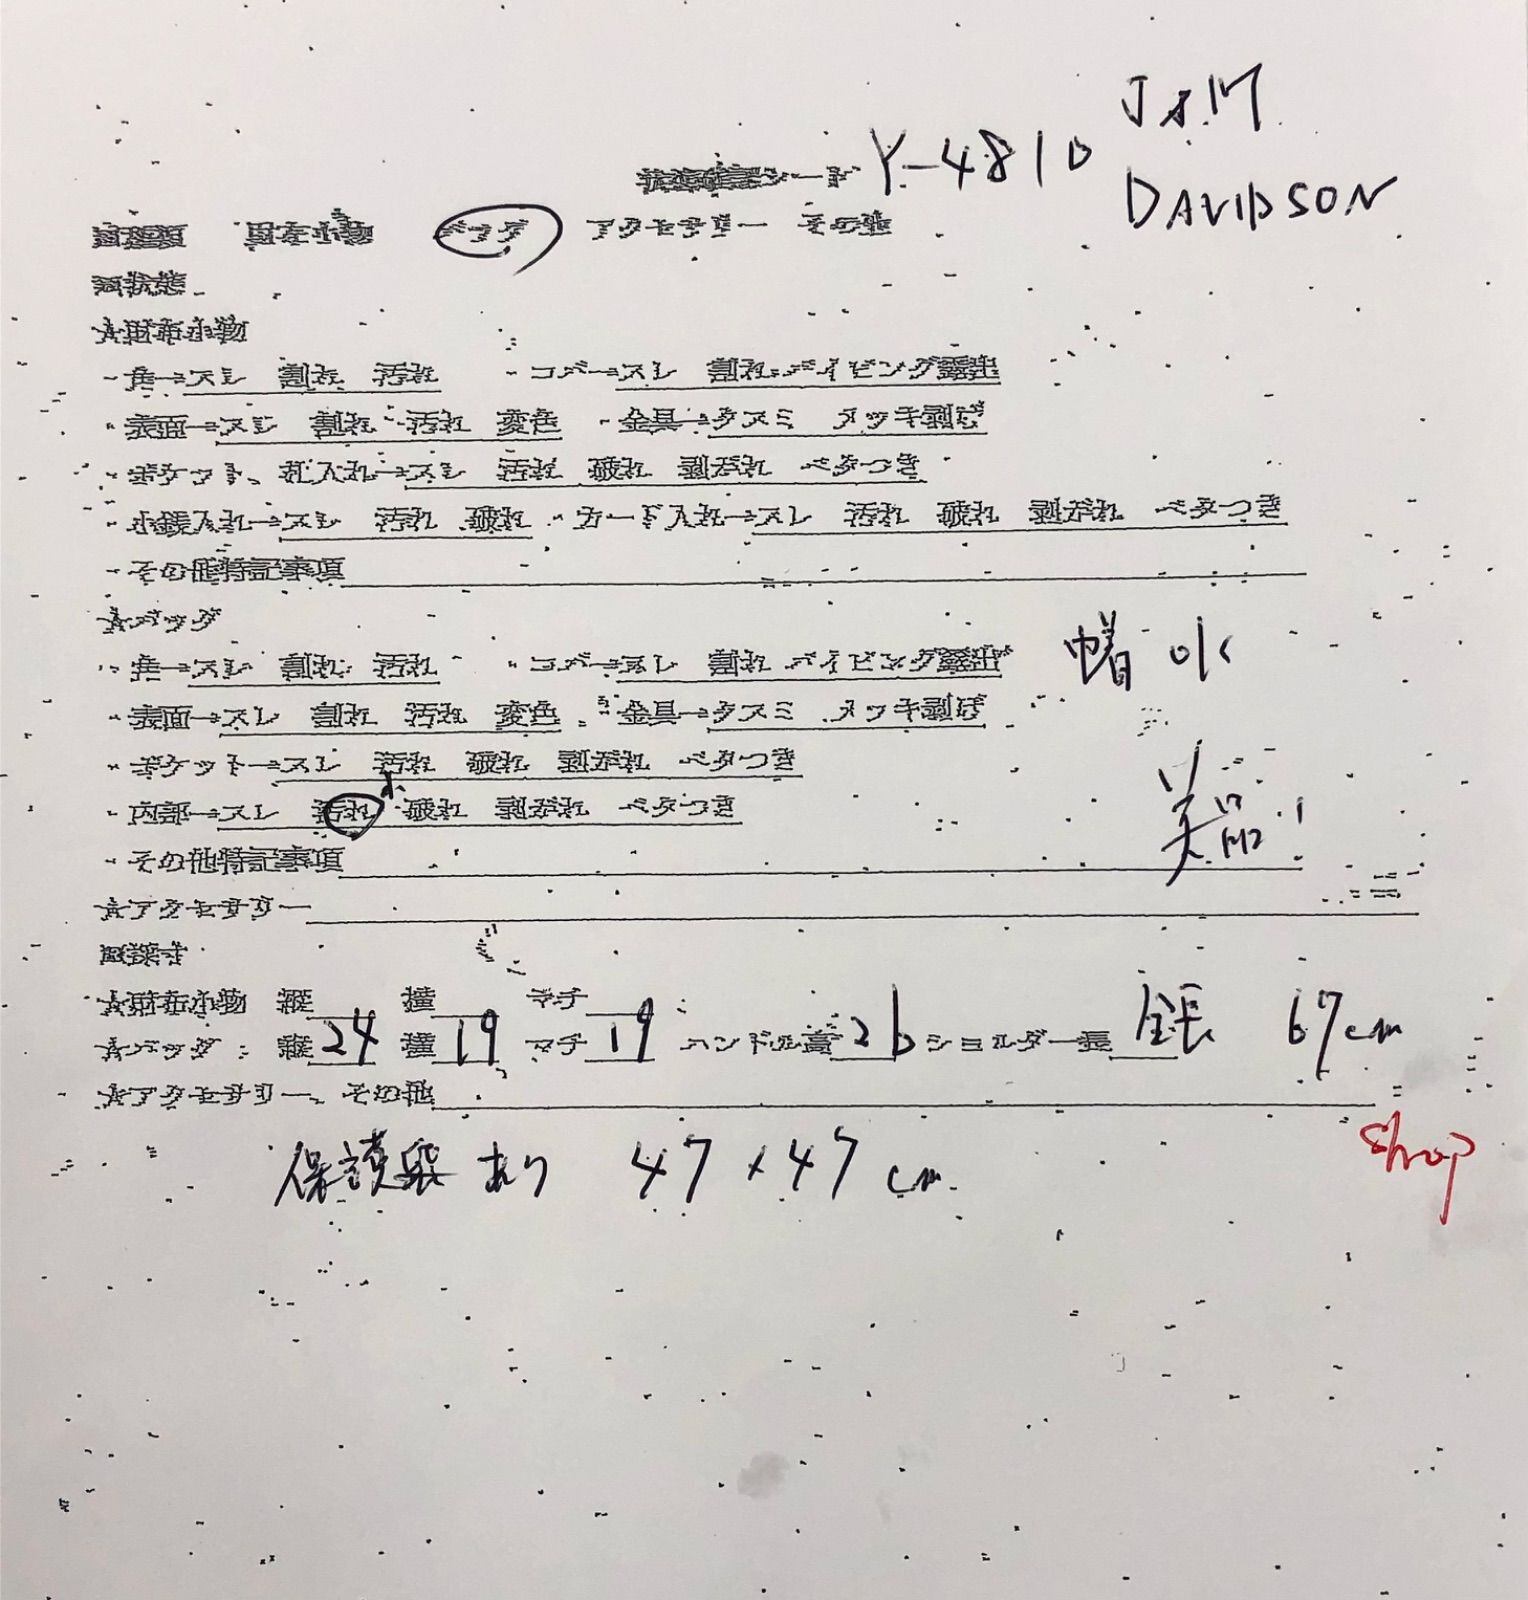 J&M
DAVIDSON
シート Y-4810
財布小物 バッグ アクセサリー その他
状態
☆財布小物
・角→スレ 割れ 汚れ ・コバ→スレ 割れ パイピング露出
・表面→スレ 割れ 汚れ 変色 ・金具→クスミ メッキ剥げ
・ポケット、札入れ→スレ 汚れ 破れ 剥がれ ベタつき
・小銭入れ→スレ 汚れ 破れ ・カード入れ→スレ 汚れ 破れ 剥がれ ベタつき
・その他特記事項
☆バッグ
・角→スレ 割れ 汚れ ・コバ→スレ 割れ パイピング露出
・表面→スレ 割れ 汚れ 変色 ・金具→クスミ メッキ剥げ
・ポケット→スレ 汚れ 破れ 剥がれ ベタつき
・内部→スレ 汚れ 小 破れ 剥がれ ベタつき
美品!
・その他特記事項
☆アクセサリー
採寸
☆財布小物 縦 横 マチ
☆バッグ 縦 24 横 19 マチ 19 ハンドル高 26 ショルダー長 全長 67cm
☆アクセサリー、その他
shop
保護袋 あり 47×47 cm